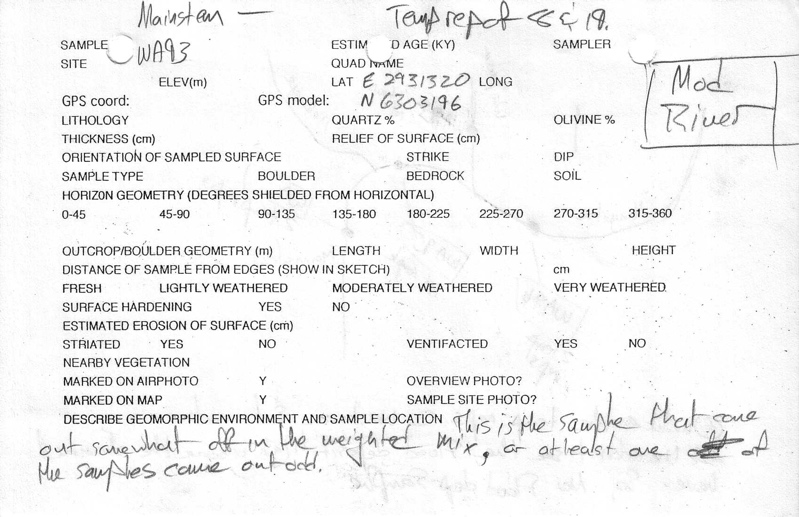 Mainstem — Temp repot 8 & 18.
SAMPLE WA93 ESTIM D AGE (KY) SAMPLER
SITE QUAD NAME
ELEV(m) LAT E 2931320 LONG
GPS coord: GPS model: N 6303196
Mod
River
LITHOLOGY QUARTZ % OLIVINE %
THICKNESS (cm) RELIEF OF SURFACE (cm)
ORIENTATION OF SAMPLED SURFACE STRIKE DIP
SAMPLE TYPE BOULDER BEDROCK SOIL
HORIZON GEOMETRY (DEGREES SHIELDED FROM HORIZONTAL)
0-45 45-90 90-135 135-180 180-225 225-270 270-315 315-360
OUTCROP/BOULDER GEOMETRY (m) LENGTH WIDTH HEIGHT
DISTANCE OF SAMPLE FROM EDGES (SHOW IN SKETCH) cm
FRESH LIGHTLY WEATHERED MODERATELY WEATHERED VERY WEATHERED
SURFACE HARDENING YES NO
ESTIMATED EROSION OF SURFACE (cm)
STRIATED YES NO VENTIFACTED YES NO
NEARBY VEGETATION
MARKED ON AIRPHOTO Y OVERVIEW PHOTO?
MARKED ON MAP Y SAMPLE SITE PHOTO?
DESCRIBE GEOMORPHIC ENVIRONMENT AND SAMPLE LOCATION This is the sample that came
out somewhat off in the weighted mix, or at least one of
the samples came out odd.